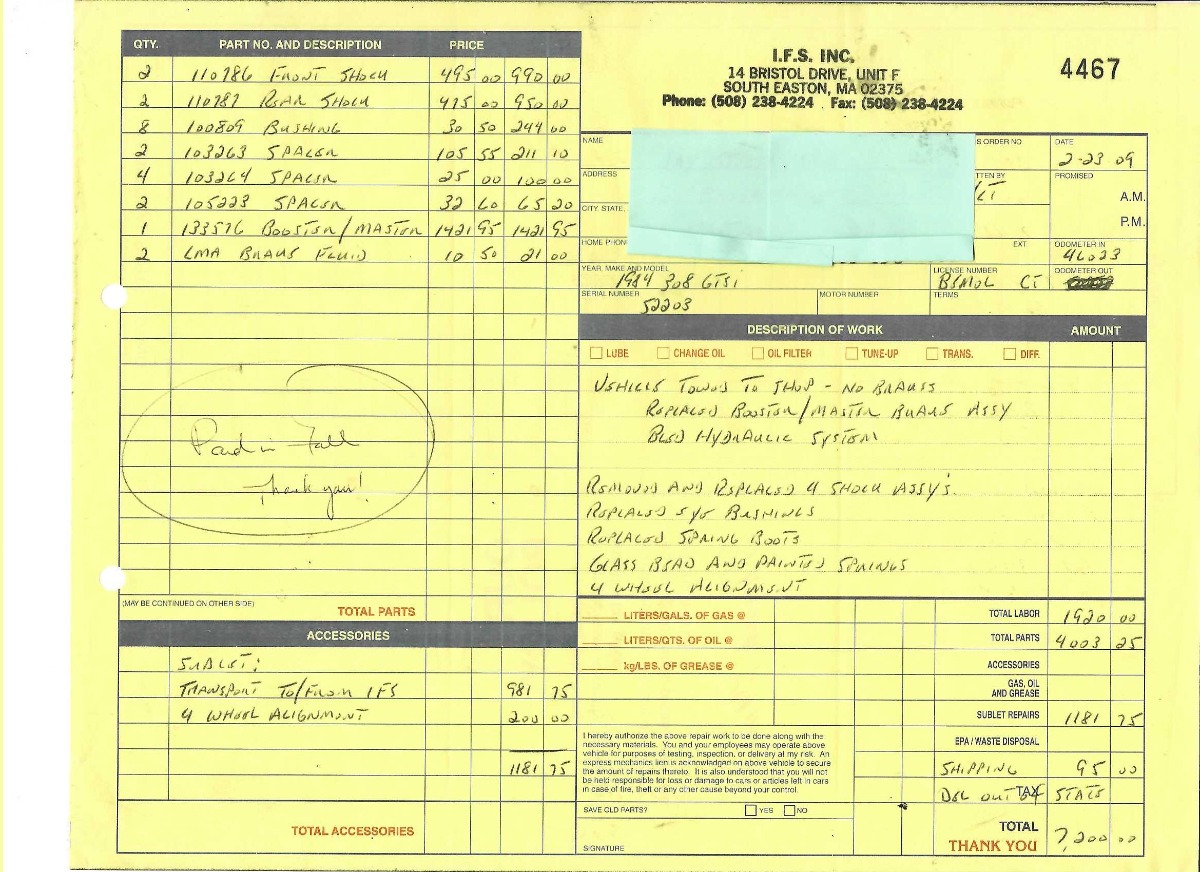 I.F.S. INC.
14 BRISTOL DRIVE, UNIT F
SOUTH EASTON, MA 02375
Phone: (508) 238-4224 Fax: (508) 238-4224
4467
QTY. PART NO. AND DESCRIPTION PRICE
2 110786 FRONT SHOCK 495 00 990 00
2 110787 REAR SHOCK 475 00 950 00
8 100809 BUSHING 30 50 244 00
2 103263 SPACER 105 55 211 10
4 103264 SPACER 25 00 100 00
2 105223 SPACER 32 60 65 20
1 133576 BOOSTER/MASTER 1421 95 1421 95
2 LMA BRAKE FLUID 10 50 21 00
Paid in Full
Thank you!
(MAY BE CONTINUED ON OTHER SIDE)
TOTAL PARTS
ACCESSORIES
SUBLET:
TRANSPORT TO/FROM IFS 981 75
4 WHEEL ALIGNMENT 200 00
1181 75
TOTAL ACCESSORIES
NAME
S ORDER NO
DATE
2-23 09
ADDRESS
TTEN BY
LT
PROMISED
A.M.
P.M.
CITY, STATE,
HOME PHON
EXT
ODOMETER IN
46023
YEAR, MAKE AND MODEL
1984 308 GTSi
LICENSE NUMBER
BSMOL CT
ODOMETER OUT
SERIAL NUMBER
52203
MOTOR NUMBER
TERMS
DESCRIPTION OF WORK AMOUNT
LUBE CHANGE OIL OIL FILTER TUNE-UP TRANS. DIFF.
VEHICLE TOWED TO SHOP - NO BRAKES
REPLACED BOOSTER/MASTER BRAKE ASSY
BLED HYDRAULIC SYSTEM
REMOVED AND REPLACED 4 SHOCK ASSY'S.
REPLACED SYE BUSHINGS
REPLACED SPRING BOOTS
GLASS BEAD AND PAINTED SPRINGS
4 WHEEL ALIGNMENT
LITERS/GALS. OF GAS @
LITERS/QTS. OF OIL @
kg/LBS. OF GREASE @
TOTAL LABOR 1920 00
TOTAL PARTS 4003 25
ACCESSORIES
GAS, OIL
AND GREASE
SUBLET REPAIRS 1181 75
EPA / WASTE DISPOSAL
SHIPPING 95 00
TAX
DEL OUT OF STATE
TOTAL 7,200 00
THANK YOU
I hereby authorize the above repair work to be done along with the
necessary materials. You and your employees may operate above
vehicle for purposes of testing, inspection, or delivery at my risk. An
express mechanics lien is acknowledged on above vehicle to secure
the amount of repairs thereto. It is also understood that you will not
be held responsible for loss or damage to cars or articles left in cars
in case of fire, theft or any other cause beyond your control.
SAVE OLD PARTS? YES NO
SIGNATURE